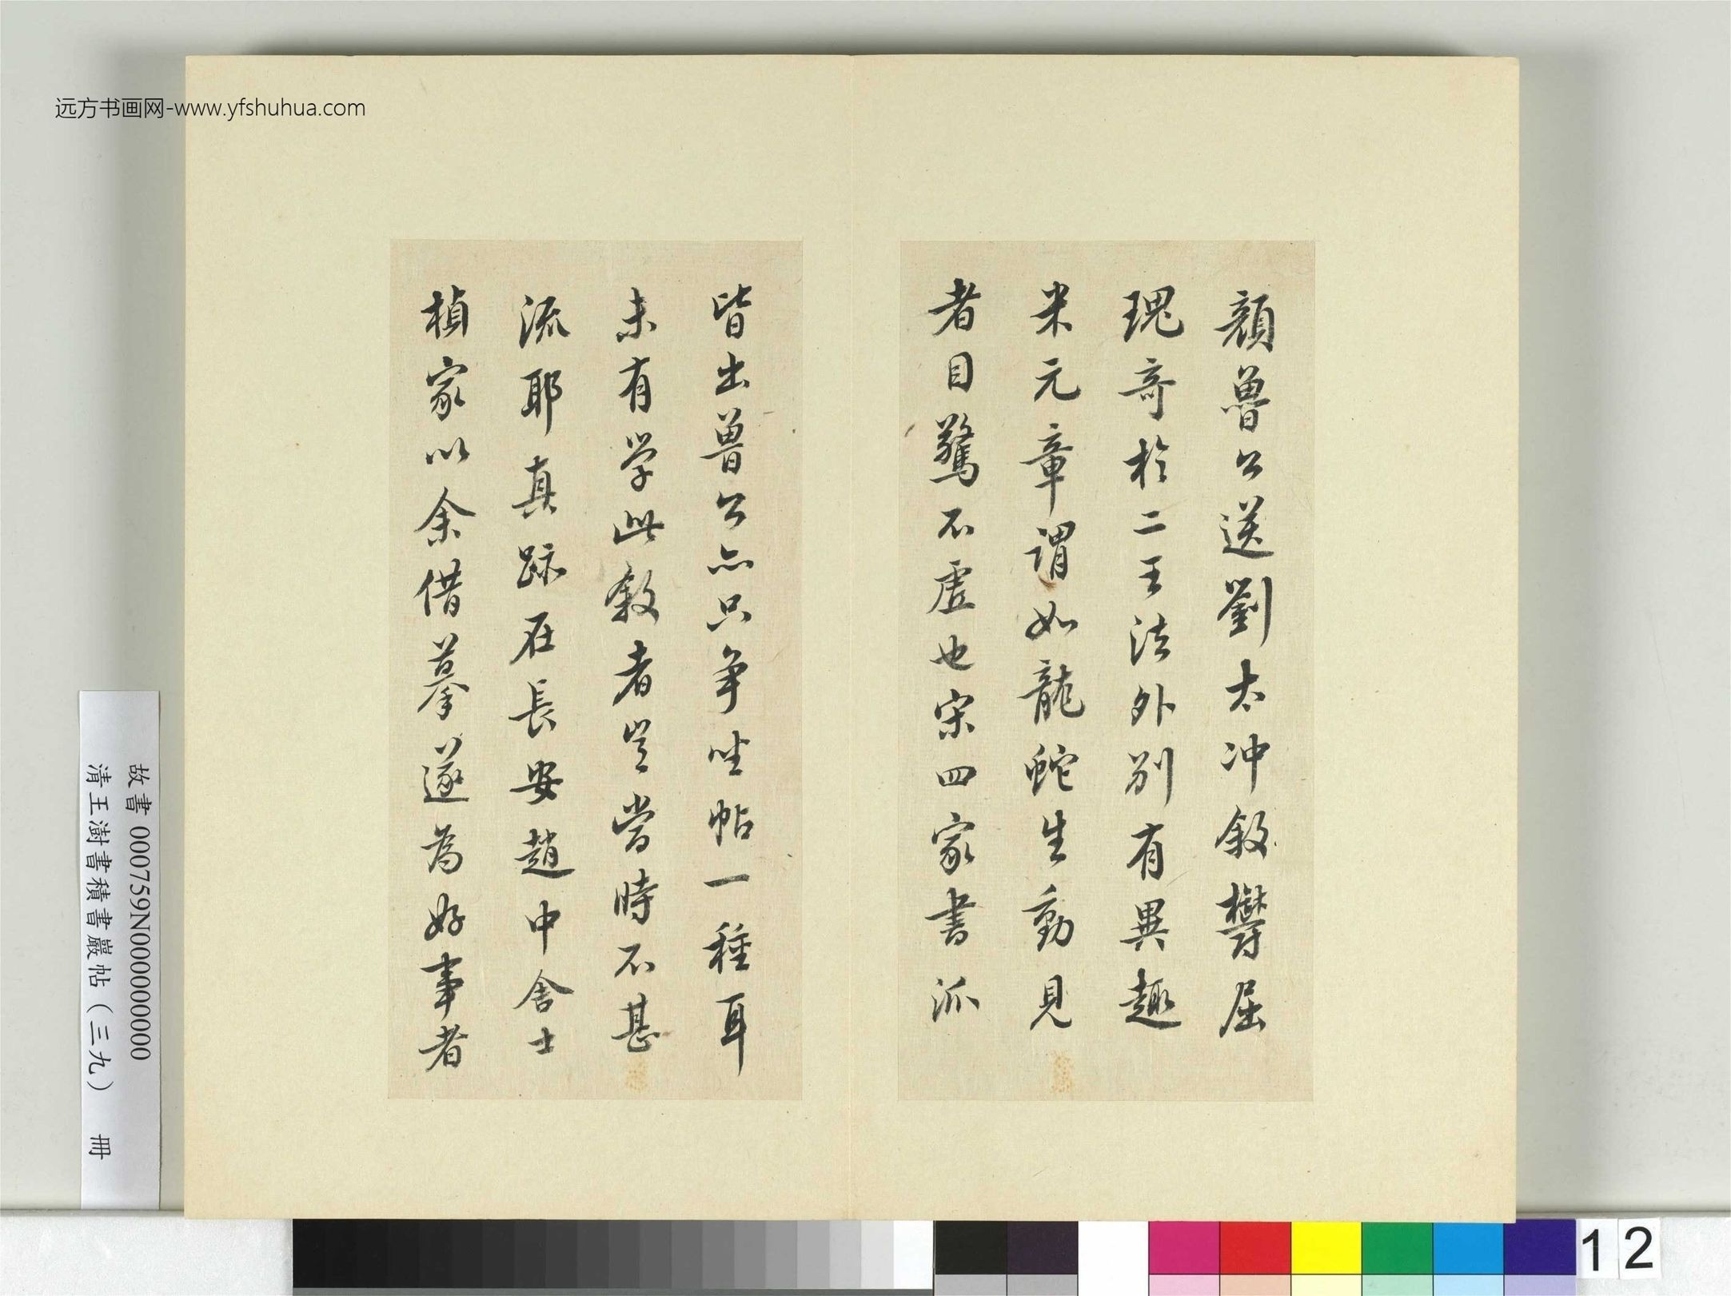 远方书画网-www.yfshuhua.com
顏魯公送劉太冲敘欝屈
瑰奇於二王法外別有異趣
米元章謂如龍蛇生動見
者目驚不虛也宋四家書派
皆出魯公亦只争坐帖一種耳
未有学此敘者豈當時不甚
流耶真跡在長安趙中舍士
楨家以余借摹遂為好事者
故書 000759N000000000
清王澍書積書巖帖（三九） 冊
12